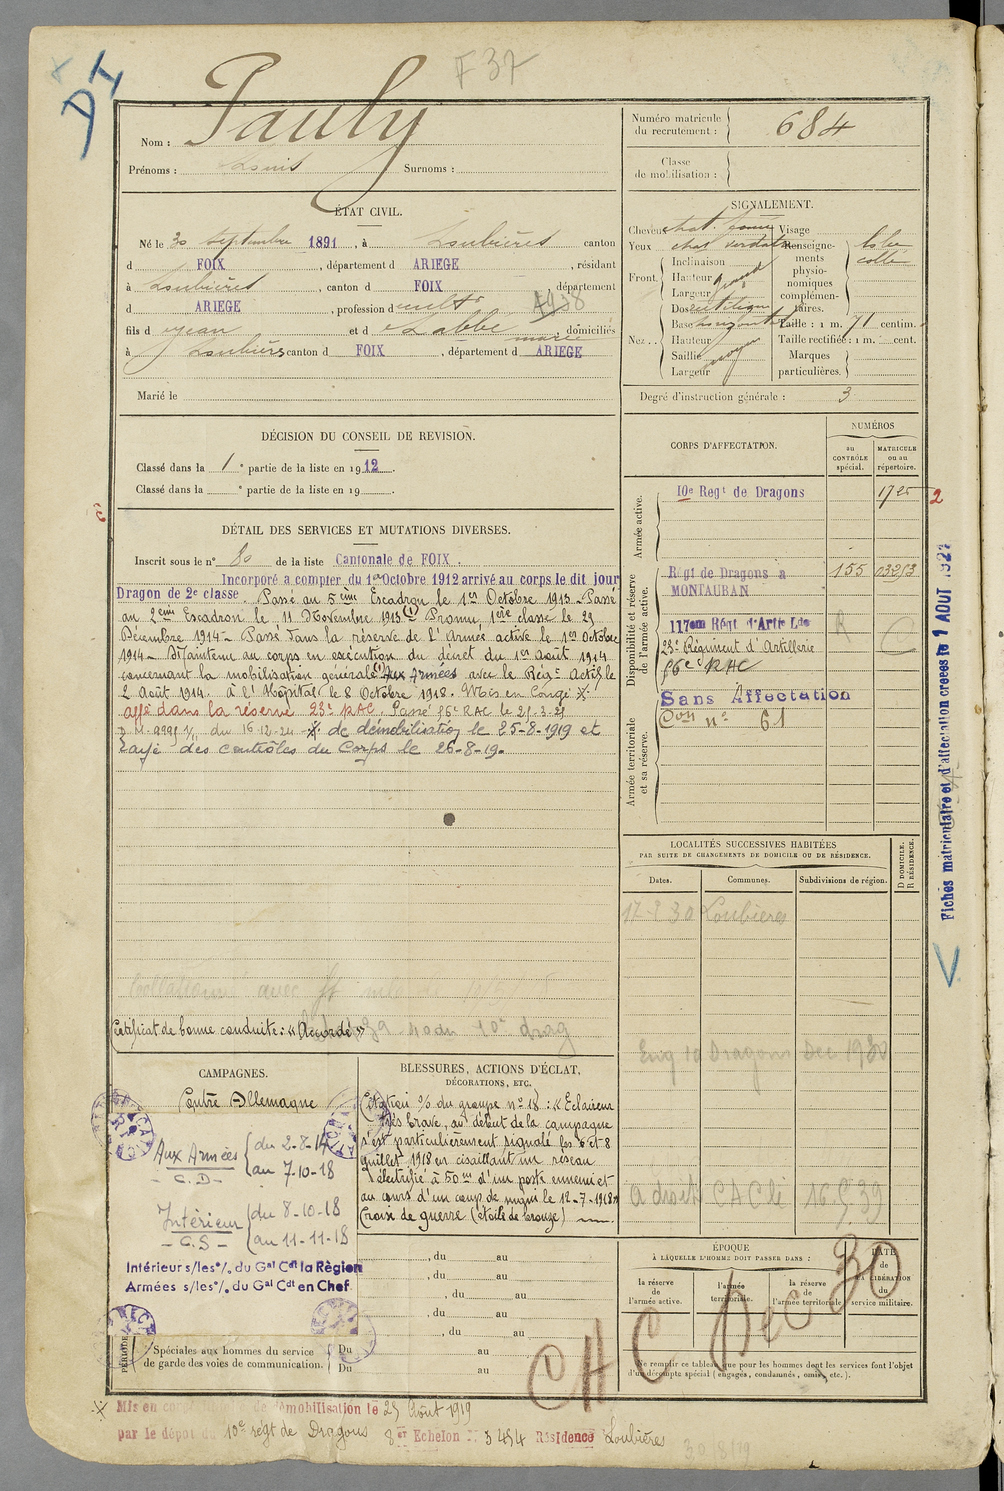 F 37
Pauly
Nom :
Prénoms : Louis Surnoms :
Numéro matricule
du recrutement : 684
Classe
de mobilisation :
ÉTAT CIVIL.
Né le 30 Septembre 1891, à Loubières canton
d FOIX, département d ARIEGE, résidant
à Loubières, canton d FOIX, département
d ARIEGE, profession d cultr
fils d Jean et d Labbe, domiciliés
marie
à Loubières canton d FOIX, département d ARIEGE
Marié le
SIGNALEMENT.
Cheveux chat. foncé Visage
Yeux chat verdatre Renseigne-
ments
physio-
nomiques
complémen-
taires.
lobe
collé
Front. Inclinaison
Hauteur grand
Largeur
Nez.. Dos rectiligne
Base horizontale Taille : 1 m. 71 centim.
Hauteur moyen Taille rectifiée : 1 m. cent.
Saillie Marques
Largeur particulières.
Degré d'instruction générale : 3
DÉCISION DU CONSEIL DE REVISION.
Classé dans la 1e partie de la liste en 1912.
Classé dans la e partie de la liste en 19 .
DÉTAIL DES SERVICES ET MUTATIONS DIVERSES.
Inscrit sous le n° 80 de la liste Cantonale de FOIX.
Incorporé a compter du 1er Octobre 1912 arrivé au corps le dit jour
Dragon de 2e classe. Passé au 5ème Escadron le 1er Octobre 1913 - Passé
au 2ème Escadron le 11 Novembre 1913 (1) Promu 1ère classe le 29
Décembre 1914 - Passé dans la réserve de l'Armée active le 1er Octobre
1914 - Maintenu au corps en exécution du décret du 1er Août 1914
concernant la mobilisation générale (1) Aux Armées avec le Régt Actif le
2 Août 1914. à l'Hôpital le 8 Octobre 1918. Mis en Congé
Affé dans la réserve 23e RAC. Passé 56e RAC le 25.3.29
du 16-12-24 de démobilisation le 25-8-1919 et
rayé des contrôles du Corps le 26-8-19.
avec
Certificat de bonne conduite : « Accordé »
10e drag
CORPS D'AFFECTATION.
NUMÉROS
au
CONTRÔLE
spécial.
MATRICULE
ou au
répertoire.
Armée active.
10e Regt de Dragons 1725
2
Disponibilité et réserve
de l'armée active.
Régt de Dragons a 155 03253
MONTAUBAN
117em Régt d'Artie Lde R
23e Régiment d'Artillerie
56e RAC
Sans Affectation
n° 61
Armée territoriale
et sa réserve.
Fiches matriculaire et d'affectation creees le 1 AOUT 1927
LOCALITÉS SUCCESSIVES HABITÉES
PAR SUITE DE CHANGEMENTS DE DOMICILE OU DE RÉSIDENCE.
Dates. Communes. Subdivisions de région.
D DOMICILE.
R RÉSIDENCE.
Loubieres
10 Dragons Dec 1930
a droit CACLI
CAMPAGNES.
Contre Allemagne
Aux Armées du 2-8-14
- C.D - au 7-10-18
Intérieur du 8-10-18
- C.S - au 11-11-18
Intérieur s/les o/. du Gal Cdt la Règion
Armées s/les o/. du Gal Cdt en Chef
BLESSURES, ACTIONS D'ÉCLAT,
DÉCORATIONS, ETC.
Citation % du groupe n° 18 : « Eclaireur
très brave, au début de la campagne
s'est particulièrement signalé les 6 et 8
Juillet 1918 en cisaillant un réseau
électrifié à 50m d'un poste ennemi et
au cours d'un coup de main le 12-7-1918 »
Croix de guerre (étoile de bronze)
, du au
, du au
, du au
, du au
, du au
PÉRIODE
Spéciales aux hommes du service
de garde des voies de communication.
Du au
Du au
ÉPOQUE
À LAQUELLE L'HOMME DOIT PASSER DANS :
la réserve
de
l'armée active.
l'armée
territoriale.
la réserve
de
l'armée territoriale
DATE
de
LA LIBÉRATION
du
service militaire.
CHC Dec 30
Ne remplir ce tableau que pour les hommes dont les services font l'objet
d'un décompte spécial (engagés, condamnés, omis, etc.).
Mis en congé de démobilisation le 25 Août 1919
par le dépot du 10e régt de Dragons 8er Echelon N° 5454 Résidence Loubières